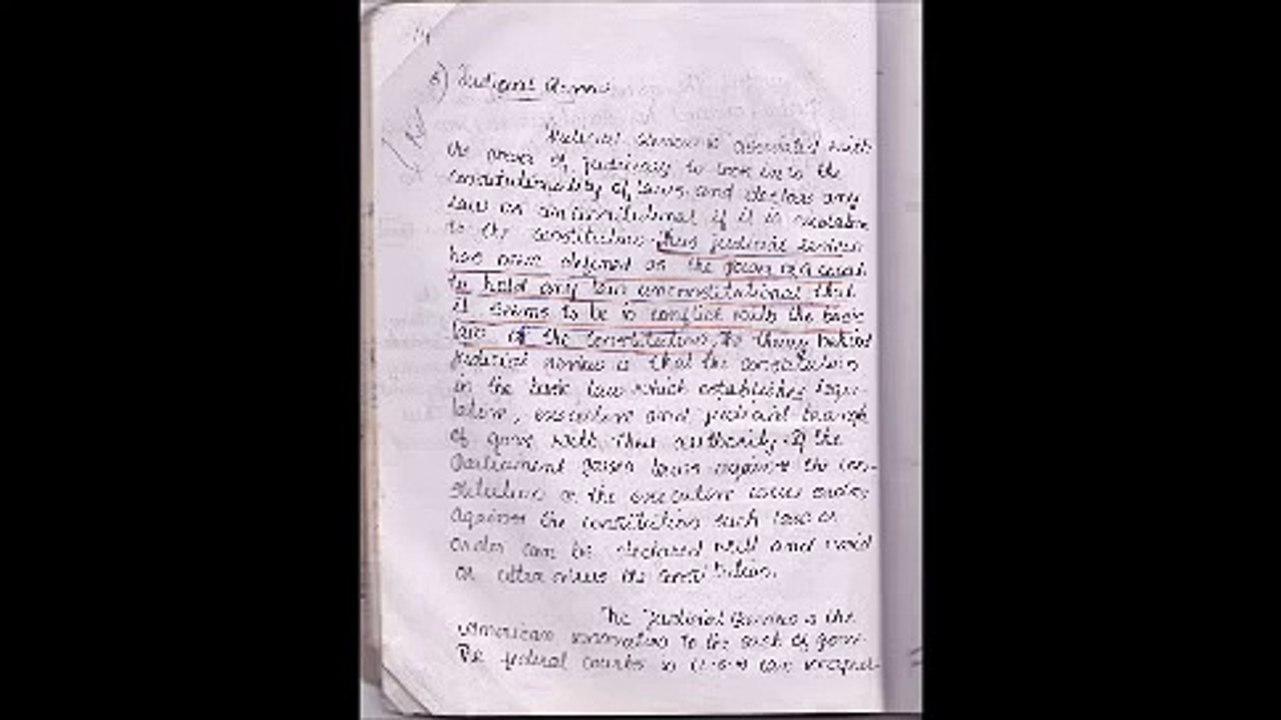 6) Judicial Review
Judicial Review is associated with
the power of judiciary to look into the
constitutionality of laws and declare any
law as unconstitutional if it is
to the constitution. Thus judicial review
has been defined as the power of a court
to hold any law unconstitutional that
it seems to be in conflict with the basic
law of the constitution, the theory behind
judicial review is that the constitution
is the basic law which establishes legis-
lature, executive and judicial branch
of govt with their authority. If the
Parliament passes laws against the con-
stitution or the executive issues orders
against the constitution such law or
order can be declared null and void
or ultra vires the constitution.
The Judicial Review is the
American innovation to the of govt.
The federal courts in U.S.A can interpret